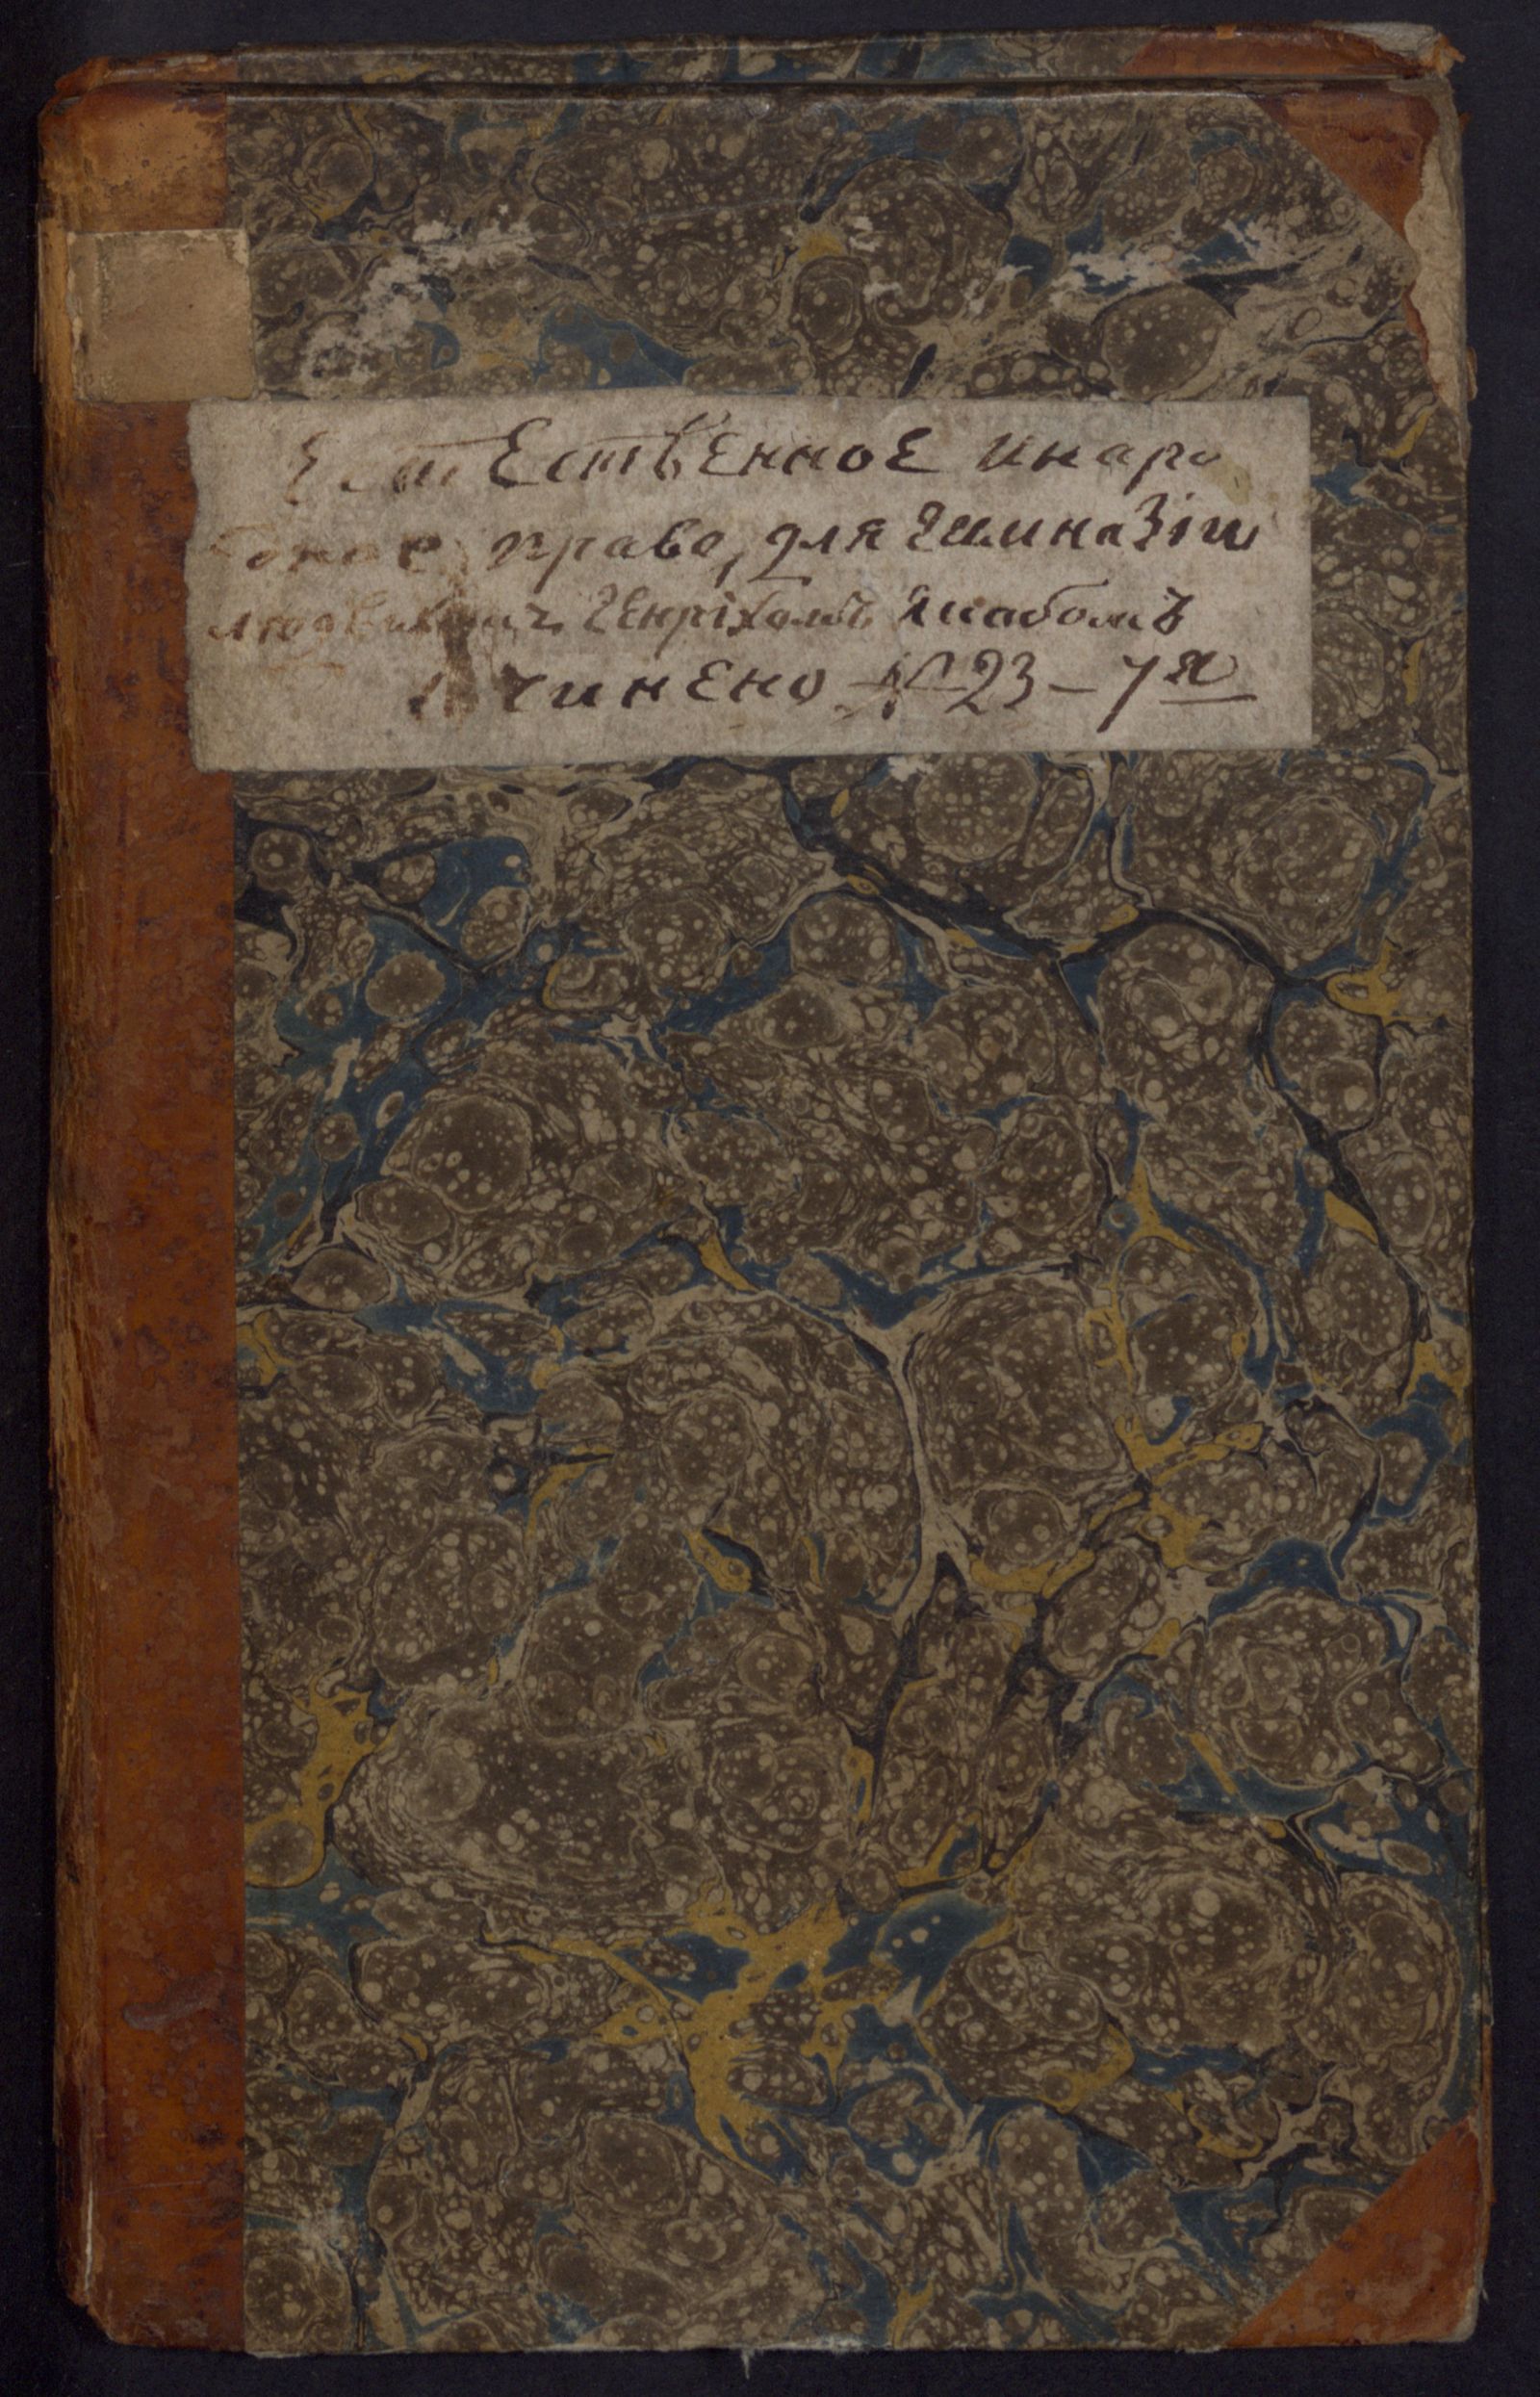 Естественное инаро
дное право, для гимназіи
Людвикомъ Генріхомъ Якабомъ
сочинено №23 – 7я